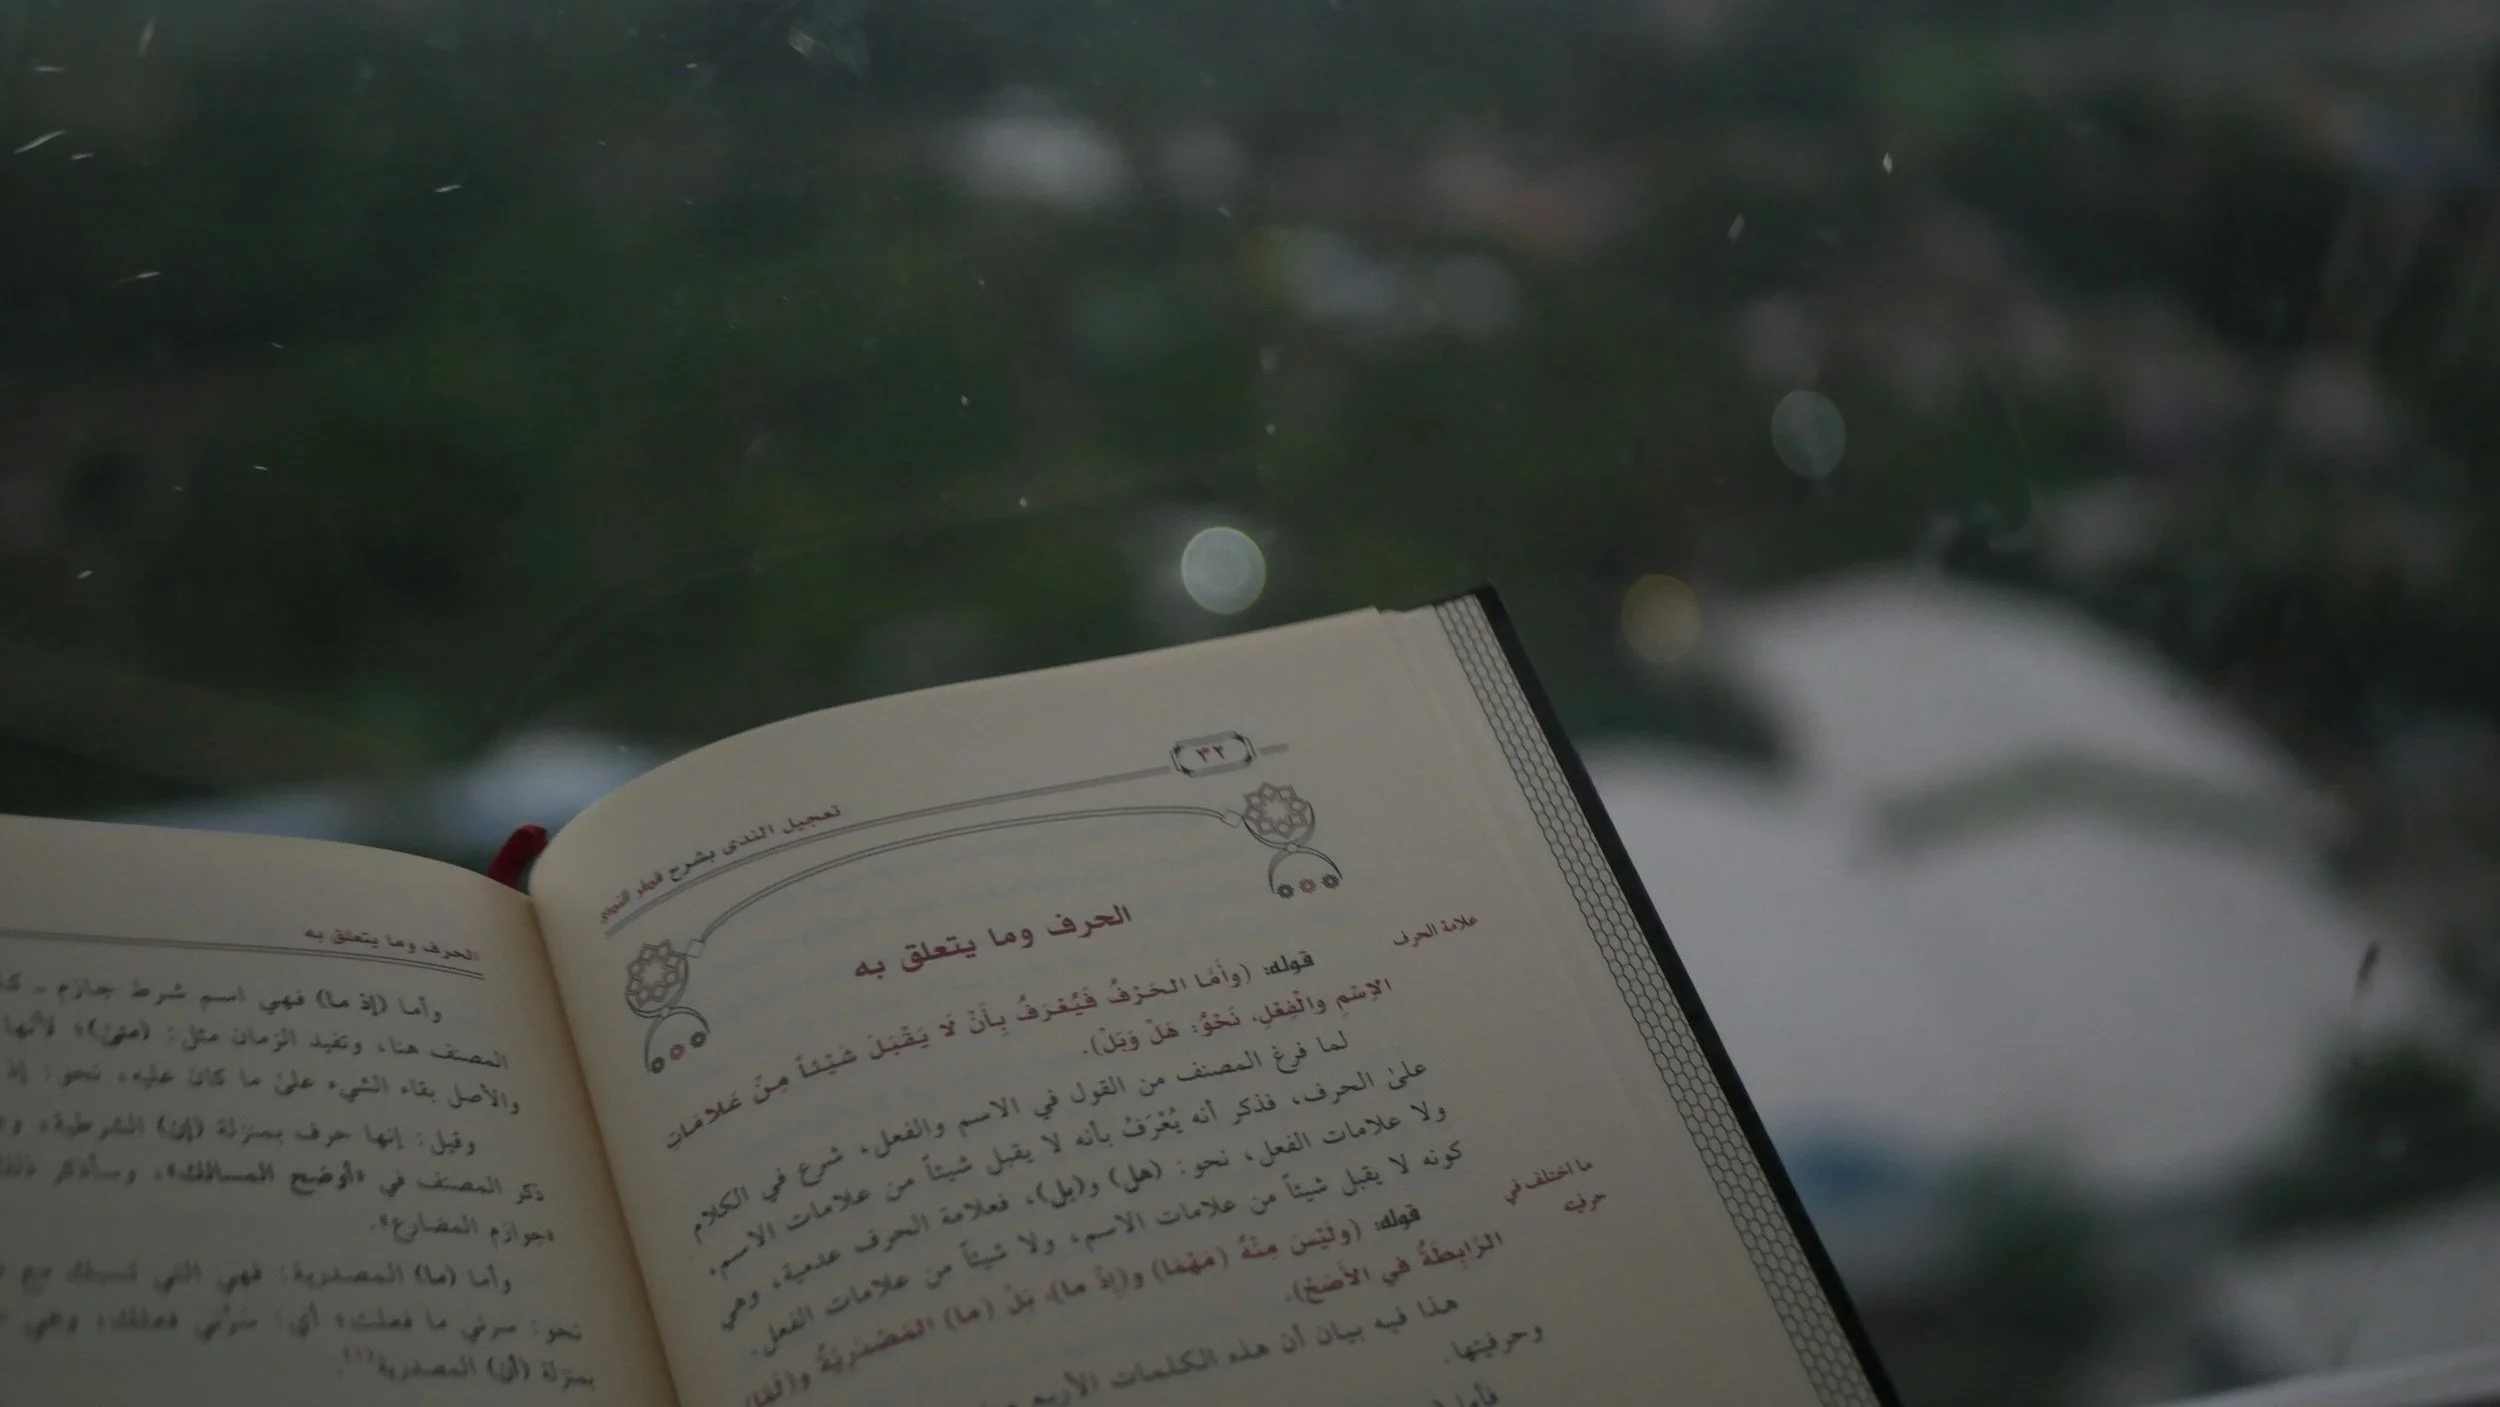 ٣٢
تعجيل الندى بشرح قطر الندى
الحرف وما يتعلق به
علامة الحرف
قوله: (وَأَمَّا الحَرْفُ فَيُعْرَفُ بِأَنْ لَا يَقْبَلَ شَيْئاً مِنْ عَلامَاتِ
الِاسْمِ والْفِعْلِ، نَحْوُ: هَلْ وَبَلْ).
لما فرغ المصنف من القول في الاسم والفعل، شرع في الكلام
على الحرف، فذكر أنه يُعْرَفُ بأنه لا يقبل شيئاً من علامات الاسم،
ولا علامات الفعل، نحو: (هل) و(بل)، فعلامة الحرف عدمية، وهي
كونه لا يقبل شيئاً من علامات الاسم، ولا شيئاً من علامات الفعل.
ما اختلف في
حرفيته
قوله: (وَلَيْسَ مِنْهُ (مَهْمَا) و(إِذْ ما)، بَلْ (ما) المَصْدَرِيَّةُ و(لَمَّا)
الرَّابِطَةُ في الأَصَحِّ).
هذا فيه بيان أن هذه الكلمات الأربع
وحرفيتها.
فأما
الحرف وما يتعلق به
وأما (إذ ما) فهي اسم شرط جازم ـ
المصنف هنا، وتفيد الزمان مثل: (متى)؛ لأنها
والأصل بقاء الشيء على ما كان عليه، نحو: إذ
وقيل: إنها حرف بمنزلة (إن) الشرطية،
ذكر المصنف في «أوضح المسالك»، وسأذكر ذلك
«جوازم المضارع».
وأما (ما) المصدرية: فهي التي تسبك مع
نحو: سرني ما فعلت؛ أي: سَرَّني فعلك، وهي
بمنزلة (أن) المصدرية(١).